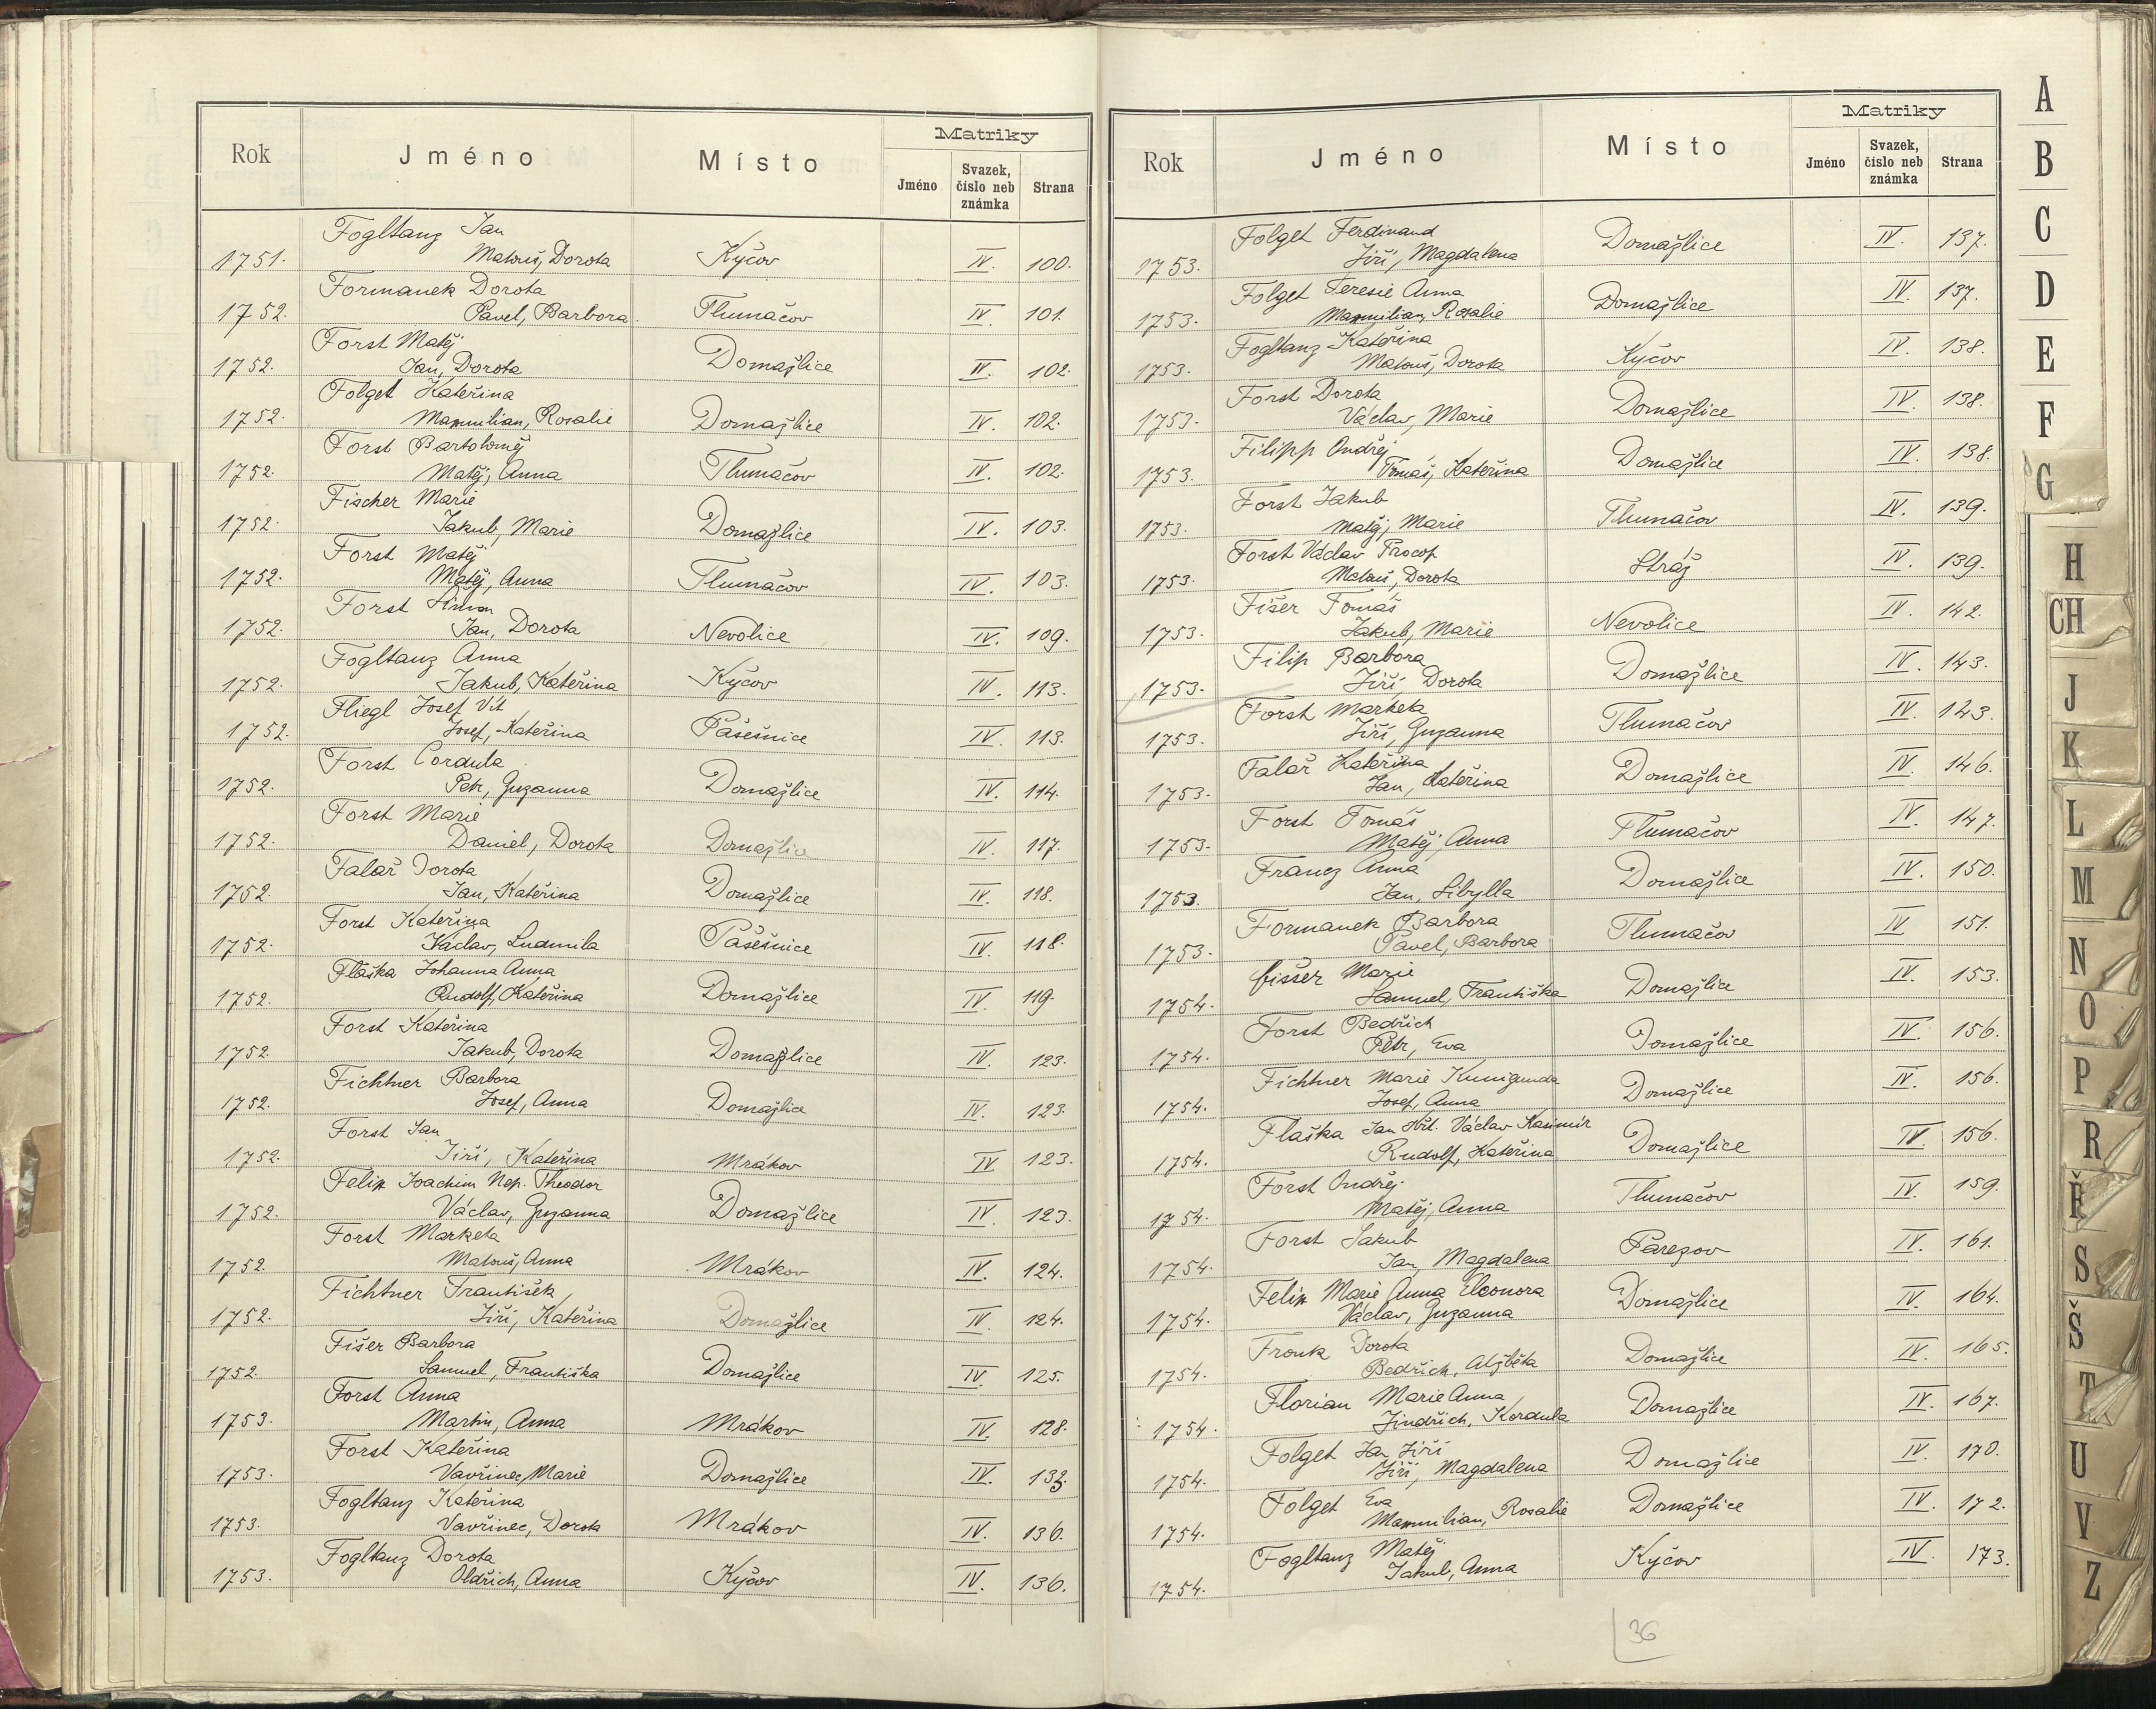 Rok Jméno Místo Matriky
Jméno Svazek, číslo neb známka Strana
Fogltanz Jan
1751. Matouš, Dorota Kyčov IV. 100.
Formanek Dorota
1752. Pavel, Barbora. Tlumačov IV. 101.
Forst Matěj
1752. Jan, Dorota Domažlice IV. 102.
Folget Kateřina
1752. Maxmilian, Rosalie Domažlice IV. 102.
Forst Bartoloměj
1752. Matěj, Anna Tlumačov IV. 102.
Fischer Marie
1752. Jakub, Marie Domažlice IV. 103.
Forst Matěj
1752. Matěj, Anna Tlumačov IV. 103.
Forst Šimon
1752. Jan, Dorota Nevolice IV. 109.
Fogltanz Anna
1752. Jakub, Kateřina Kyčov IV. 113.
Fliegl Josef Vít
1752. Josef, Kateřina Pašešnice IV. 113.
Forst Cordula
1752. Petr, Zuzanna Domažlice IV. 114.
Forst Marie
1752. Daniel, Dorota Domažlice IV. 117.
Falař Dorota
1752. Jan, Kateřina Domažlice IV. 118.
Forst Kateřina
1752. Václav, Ludmila Pašešnice IV. 118.
Flaška Johanna Anna
1752. Rudolf, Kateřina Domažlice IV. 119.
Forst Kateřina
1752. Jakub, Dorota Domažlice IV. 123.
Fichtner Barbora
1752. Josef, Anna Domažlice IV. 123.
Forst Jan
1752. Jiří, Kateřina Mrákov IV. 123.
Felix Joachim Nep. Theodor
1752. Václav, Zuzanna Domažlice IV. 123.
Forst Marketa
1752. Matouš, Anna Mrákov IV. 124.
Fichtner František
1752. Jiří, Kateřina Domažlice IV. 124.
Fišer Barbora
1752. Samuel, Františka Domažlice IV. 125.
Forst Anna
1753. Martin, Anna Mrákov IV. 128.
Forst Kateřina
1753. Vavřinec, Marie Domažlice IV. 133.
Fogltanz Kateřina
1753. Vavřinec, Dorota Mrákov IV. 136.
Fogltanz Dorota
1753. Oldřich, Anna Kyčov IV. 136.
Rok Jméno Místo Matriky
Jméno Svazek, číslo neb známka Strana
Folget Ferdinand
1753. Jiří, Magdalena Domažlice IV. 137.
Folget Teresie Anna
1753. Maxmilian, Rosalie Domažlice IV. 137.
Fogltanz Kateřina
1753. Matouš, Dorota Kyčov IV. 138.
Forst Dorota
1753. Václav, Marie Domažlice IV. 138.
Filipp Ondřej
1753. Tomáš, Kateřina Domažlice IV. 138.
Forst Jakub
1753. Matěj, Marie Tlumačov IV. 139.
Forst Václav Procop
1753. Matouš, Dorota Stráž IV. 139.
Fišer Tomáš
1753. Jakub, Marie Nevolice IV. 142.
Filip Barbora
1753. Jiří, Dorota Domažlice IV. 143.
Forst Marketa
1753. Jiří, Zuzanna Tlumačov IV. 143.
Falař Kateřina
1753. Jan, Kateřina Domažlice IV. 146.
Forst Tomáš
1753. Matěj, Anna Tlumačov IV. 147.
Francz Anna
1753. Jan, Sibylla Domažlice IV. 150.
Formanek Barbora
1753. Pavel, Barbora Tlumačov IV 151.
fišser Marie
1754. Samuel, Františka Domažlice IV. 153.
Forst Bedřich
1754. Petr, Eva Domažlice IV. 156.
Fichtner Marie Kunigunda
1754. Josef, Anna Domažlice IV. 156.
Flaška Jan Křt. Václav Kasimír
1754. Rudolf, Kateřina Domažlice IV. 156.
Forst Ondřej
1754. Matěj, Anna Tlumačov IV. 159.
Forst Jakub
1754. Jan, Magdalena Parezov IV. 161.
Felix Marie Anna Eleonora
1754. Václav, Zuzanna Domažlice IV. 164.
Fronk Dorota
1754. Bedřich, Alžběta Domažlice IV. 165.
Florian Marie Anna
1754. Jindřich, Kordula Domažlice IV. 167.
Folget Jan Jiří
1754. Jiří, Magdalena Domažlice IV. 170.
Folget Eva
1754. Maxmilian, Rosalie Domažlice IV. 172.
Fogltanz Matěj
1754. Jakub, Anna Kyčov IV. 173.
36
A
B
C
D
E
F
G
H
CH
J
K
L
M
N
O
P
R
Ř
S
Š
T
U
V
Z